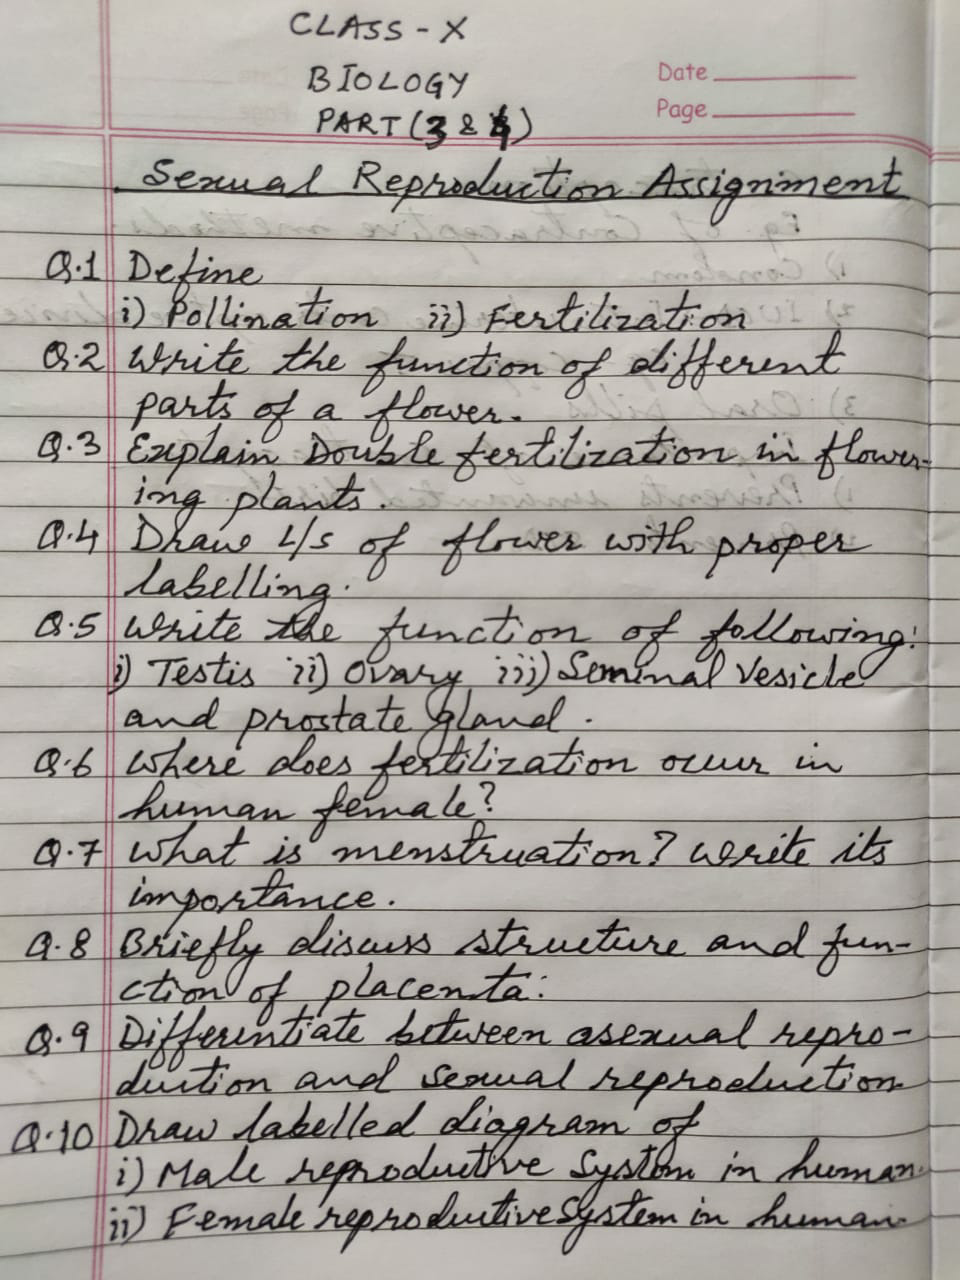 CLASS - X
BIOLOGY
Date
PART (3 & 4)
Page
Sexual Reproduction Assignment
Q.1 Define
i) Pollination ii) Fertilization
Q.2 Write the function of different
parts of a flower.
Q.3 Explain Double fertilization in flower-
ing plants.
Q.4 Draw L/s of flower with proper
labelling.
Q.5 Write the function of following:
i) Testis ii) Ovary iii) Seminal Vesicle
and prostate gland.
Q.6 Where does fertilization occur in
human female?
Q.7 What is menstruation? Write its
importance.
Q.8 Briefly discuss structure and fun-
ction of placenta.
Q.9 Differentiate between asexual repro-
duction and sexual reproduction
Q.10 Draw labelled diagram of
i) Male reproductive System in human.
ii) Female reproductive System in human